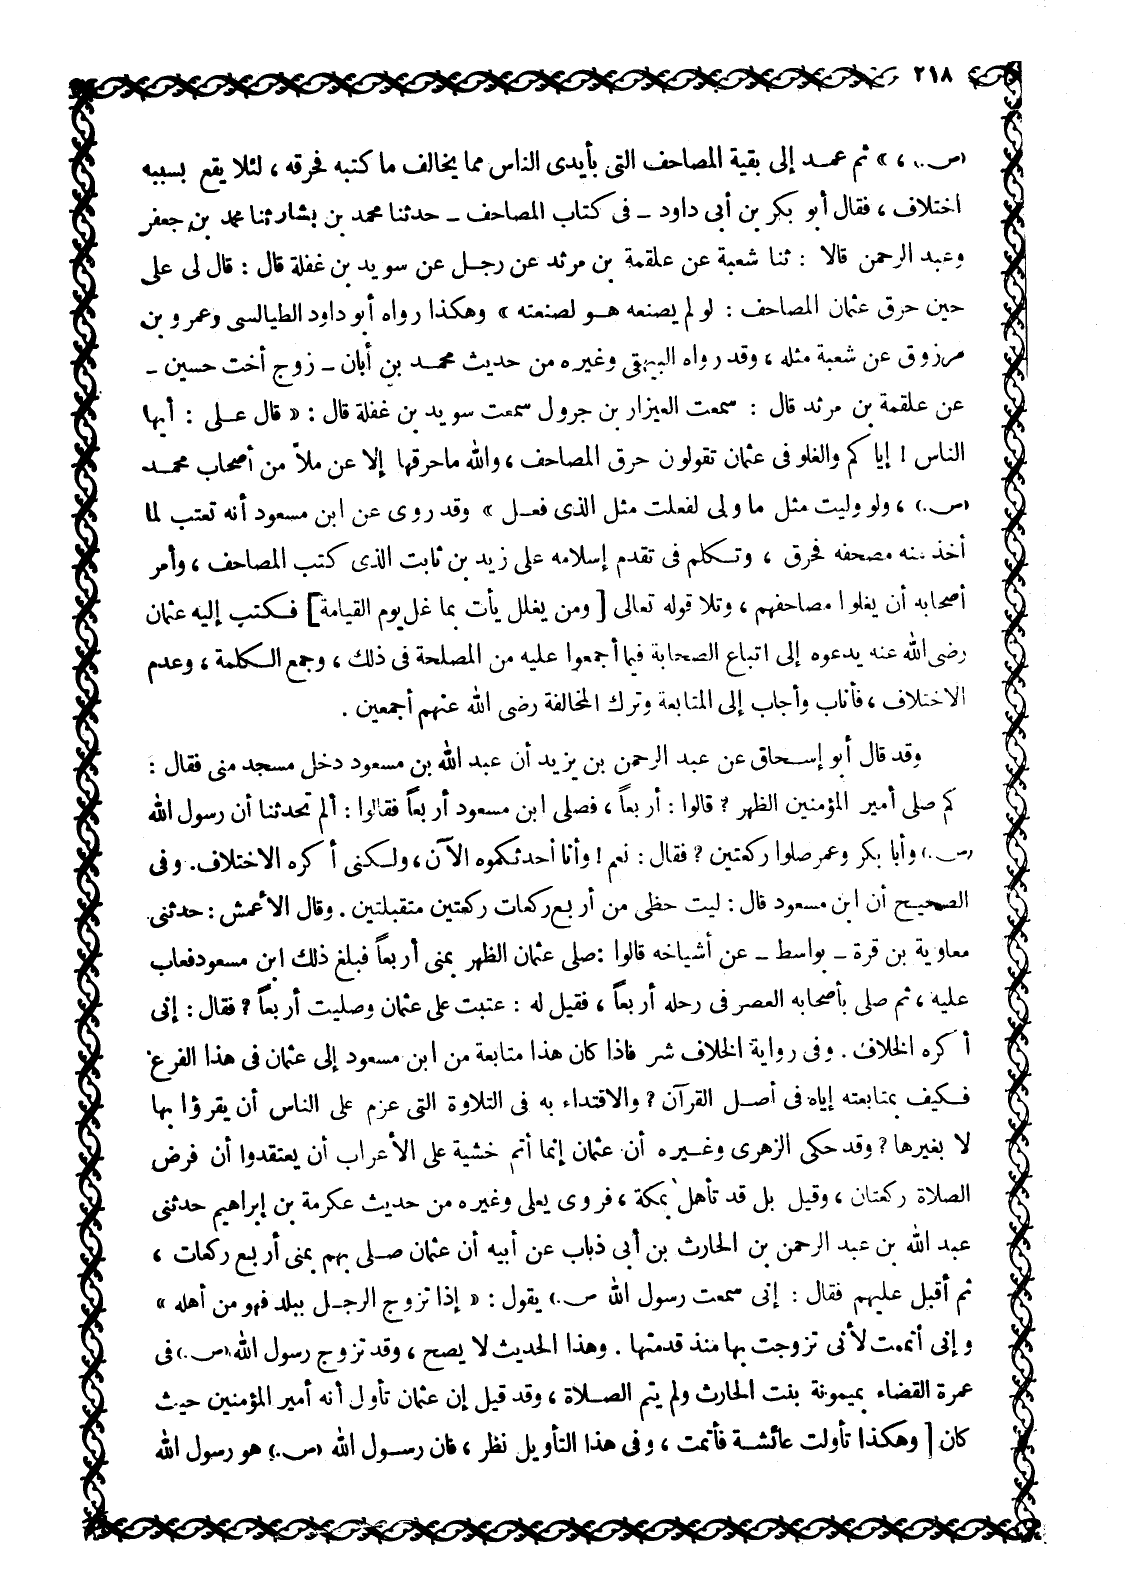 ٢١٨
(ص.) ، » ثم عمد إلى بقية المصاحف التى بأيدى الناس مما يخالف ما كتبه فحرقه ، لئلا يقع بسببه
اختلاف ، فقال أبو بكر بن أبى داود ـ فى كتاب المصاحف ـ حدثنا محمد بن بشار ثنا محمد بن جعفر
وعبد الرحمن قالا : ثنا شعبة عن علقمة بن مرثد عن رجل عن سويد بن غفلة قال : قال لى على
حين حرق عثمان المصاحف : لو لم يصنعه هو لصنعته » وهكذا رواه أبو داود الطيالسى وعمرو بن
مرزوق عن شعبة مثله ، وقد رواه البيهقى وغيره من حديث محمد بن أبان ـ زوج أخت حسين ـ
عن علقمة بن مرثد قال : سمعت العيزار بن جرول سمعت سويد بن غفلة قال : « قال على : أيها
الناس ! إياكم والغلو فى عثمان تقولون حرق المصاحف ، والله ماحرقها إلا عن ملأ من أصحاب محمد
(ص.) ، ولو وليت مثل ما ولى لفعلت مثل الذى فعل » وقد روى عن ابن مسعود أنه تعتب لما
أخذ منه مصحفه فحرق ، وتكلم فى تقدم إسلامه على زيد بن ثابت الذى كتب المصاحف ، وأمر
أصحابه أن يغلوا مصاحفهم ، وتلا قوله تعالى [ ومن يغلل يأت بما غل يوم القيامة ] فكتب إليه عثمان
رضى الله عنه يدعوه إلى اتباع الصحابة فيما أجمعوا عليه من المصلحة فى ذلك ، وجمع الكلمة ، وعدم
الاختلاف ، فأناب وأجاب إلى المتابعة وترك المخالفة رضى الله عنهم أجمعين .
وقد قال أبو إسحاق عن عبد الرحمن بن يزيد أن عبد الله بن مسعود دخل مسجد منى فقال :
كم صلى أمير المؤمنين الظهر ? قالوا : أربعاً ، فصلى ابن مسعود أربعاً فقالوا : ألم تحدثنا أن رسول الله
(ص.) وأبا بكر وعمر صلوا ركعتين ? فقال : نعم ! وأنا أحدثكموه الآن ، ولكنى أكره الاختلاف. وفى
الصحيح أن ابن مسعود قال : ليت حظى من أربع ركعات ركعتين متقبلتين . وقال الأعمش : حدثنى
معاوية بن قرة ـ بواسط ـ عن أشياخه قالوا : صلى عثمان الظهر بمنى أربعاً فبلغ ذلك ابن مسعود فعاب
عليه ، ثم صلى بأصحابه العصر فى رحله أربعاً ، فقيل له : عتبت على عثمان وصليت أربعاً ? فقال : إنى
أكره الخلاف . وفى رواية الخلاف شر فاذا كان هذا متابعة من ابن مسعود إلى عثمان فى هذا الفرع
فكيف بمتابعته إياه فى أصل القرآن ? والاقتداء به فى التلاوة التى عزم على الناس أن يقرؤا بها
لا بغيرها ? وقد حكى الزهرى وغيره أن عثمان إنما أتم خشية على الأعراب أن يعتقدوا أن فرض
الصلاة ركعتان ، وقيل بل قد تأهل بمكة ، فروى يعلى وغيره من حديث عكرمة بن إبراهيم حدثنى
عبد الله بن عبد الرحمن بن الحارث بن أبى ذباب عن أبيه أن عثمان صلى بهم بمنى أربع ركعات ،
ثم أقبل عليهم فقال : إنى سمعت رسول الله ص.) يقول : « إذا تزوج الرجل ببلد فهو من أهله »
وإنى أتممت لأنى تزوجت بها منذ قدمتها . وهذا الحديث لا يصح ، وقد تزوج رسول الله (ص.) فى
عمرة القضاء بميمونة بنت الحارث ولم يتم الصلاة ، وقد قيل إن عثمان تأول أنه أمير المؤمنين حيث
كان [ وهكذا تأولت عائشة فأتمت ، وفى هذا التأويل نظر ، فان رسول الله (ص.) هو رسول الله